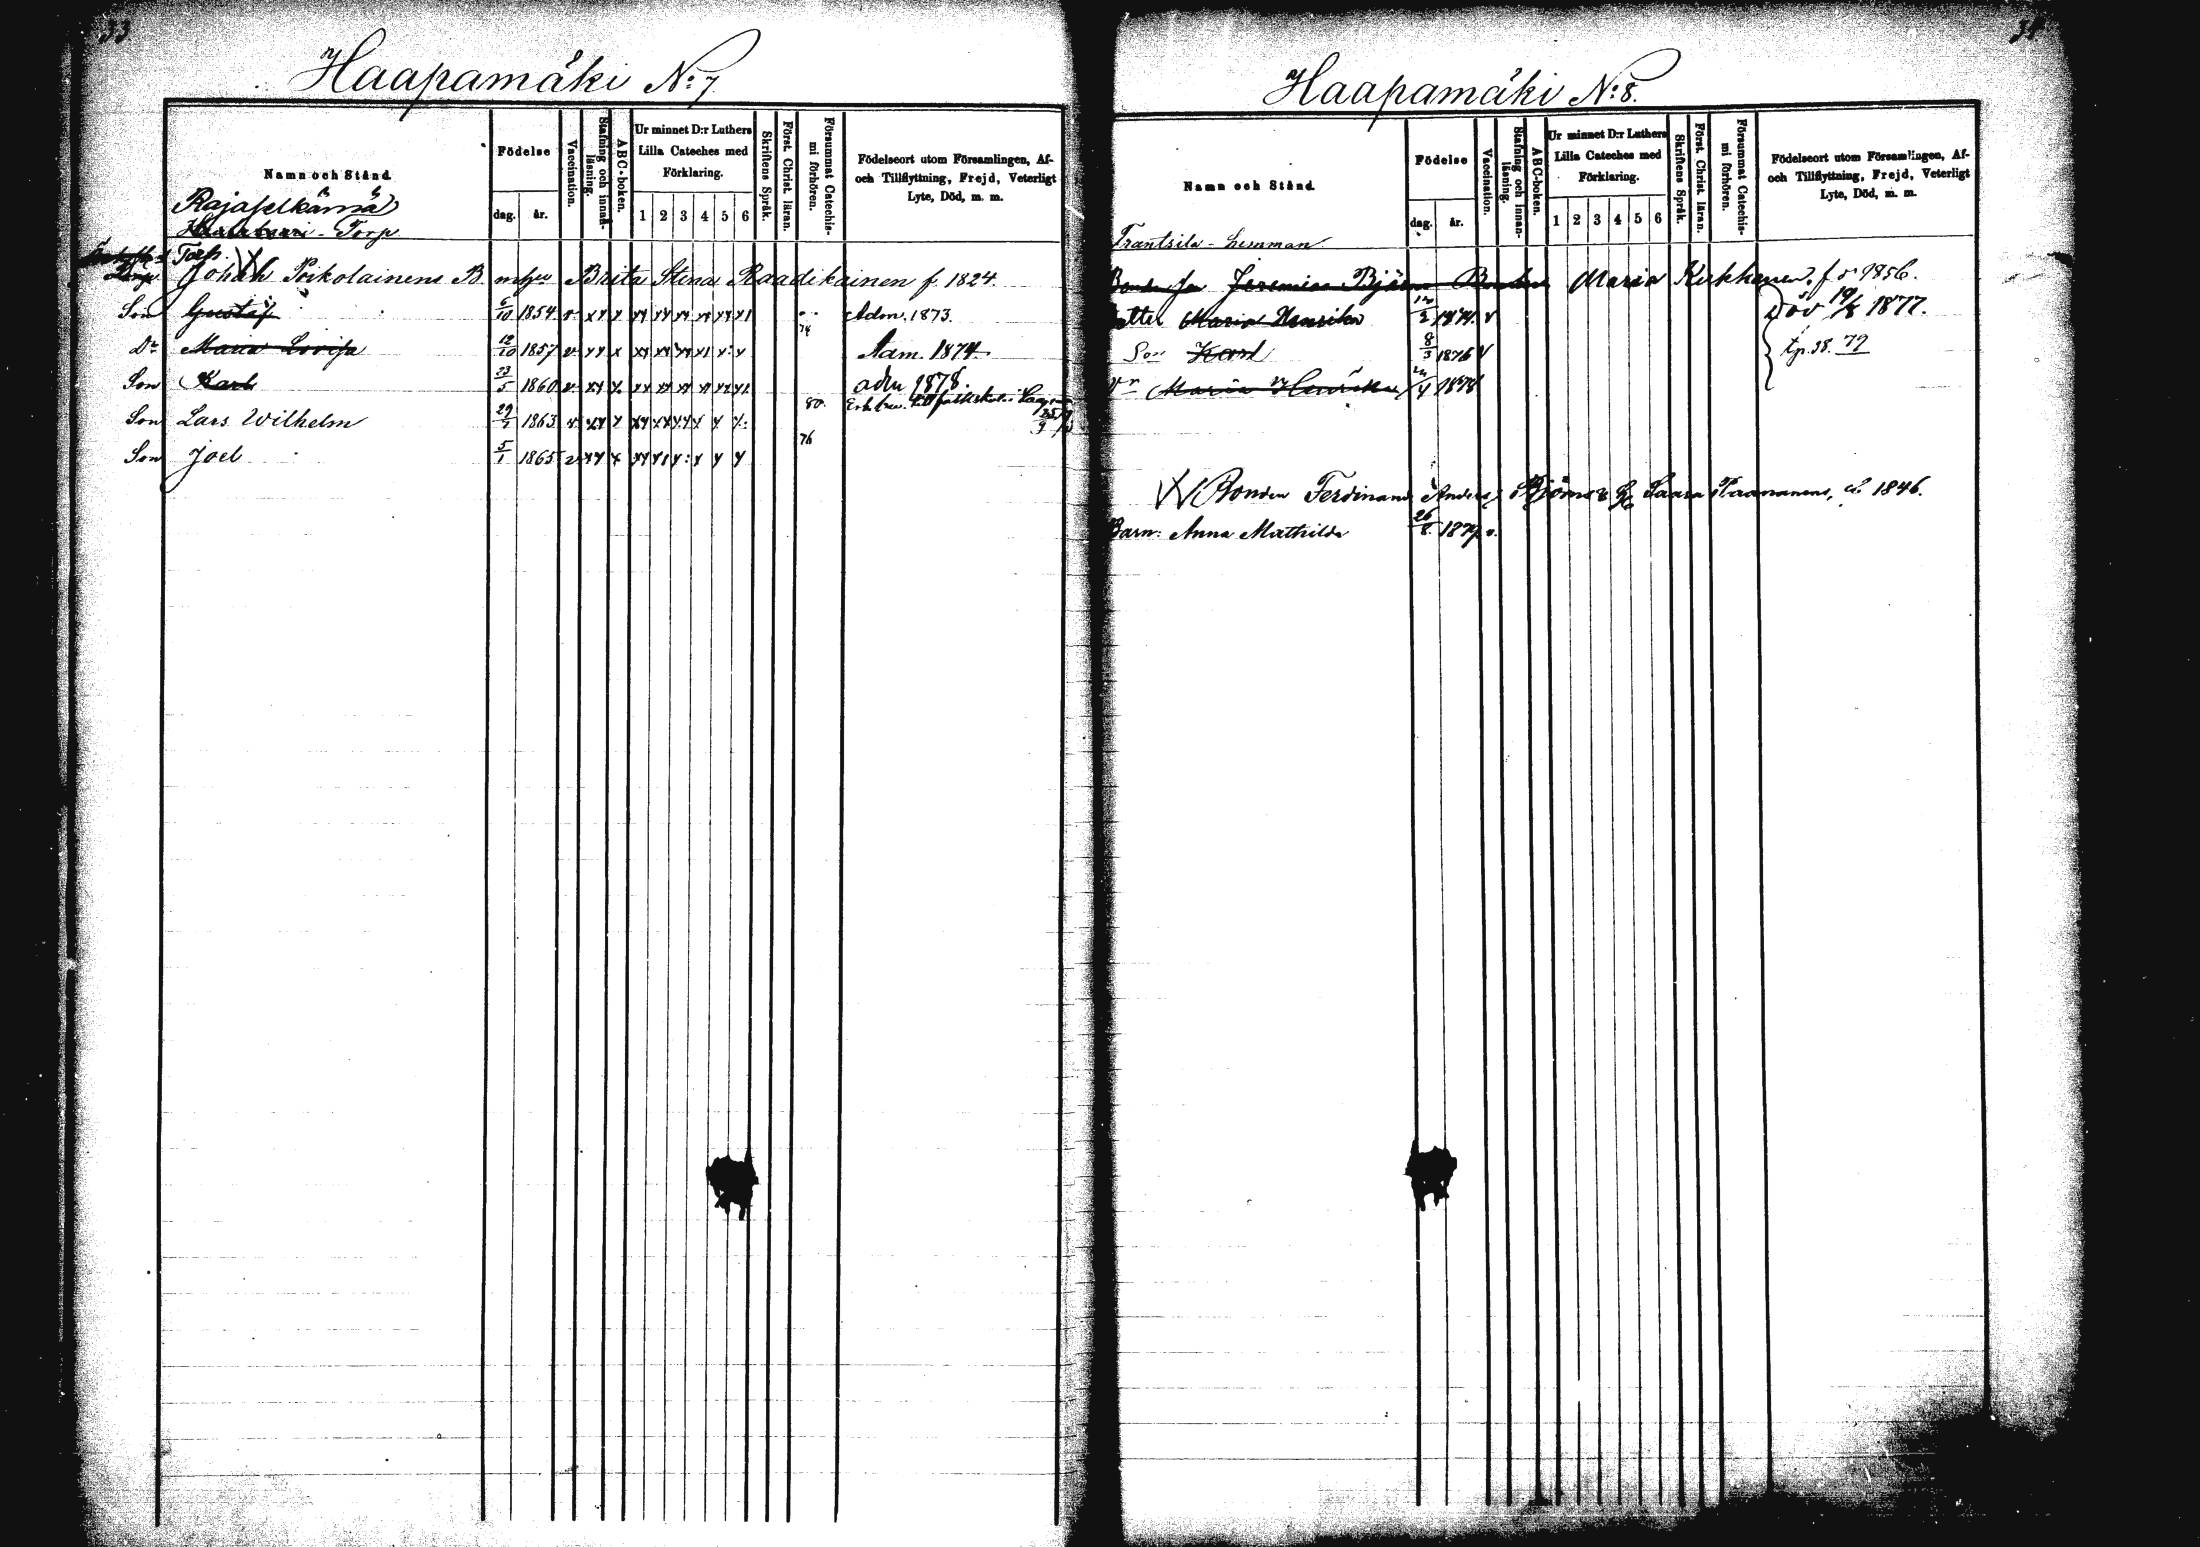 33
Haapamäki No: 7
Namn och Stånd
Födelse
dag.
år.
Vaccination.
Stafning och innan-läsning.
ABC-boken.
Ur minnet D:r Luthers Lilla Cateches med Förklaring.
1 2 3 4 5 6
Skriftens Språk.
Först. Christ. läran.
Försummat Catechis-mi förhören.
Födelseort utom Församlingen, Af- och Tillflyttning, Frejd, Veterligt Lyte, Död, m. m.
Torp
Torp.
Johan Nikolainens B. Brita Stena Raadikainen f. 1824.
Son Gustaf 6/10 1854 Adm. 1873.
Dr Maria Lovisa 12/10 1857 74 Adm. 1874
Son Karl 23/5 1860 adm 1878.
Son Lars Wilhelm 1863 80.
Son Joel 5/1 1865 76
34
Haapamäki No: 8.
Namn och Stånd
Födelse
dag.
år.
Vaccination.
Stafning och innan-läsning.
ABC-boken.
Ur minnet D:r Luthers Lilla Cateches med Förklaring.
1 2 3 4 5 6
Skriftens Språk.
Först. Christ. läran.
Försummat Catechis-mi förhören.
Födelseort utom Församlingen, Af- och Tillflyttning, Frejd, Veterligt Lyte, Död, m. m.
Trantsila - hemman
Jeremias Maria f 1856.
Maria Henrika 1874 v 1877.
Son Karl 8/3 1876 v 79
Maria Henrika 1878
Bonden Ferdinand Anders Björn Saara 1846.
Barn: Anna Mathilda 26/8 1879 v.